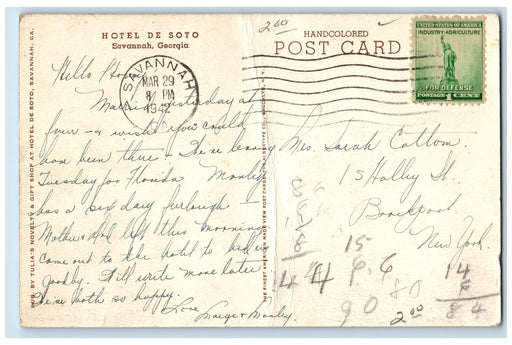 HOTEL DE SOTO
Savannah, Georgia
2 00
HANDCOLORED
POST CARD
UNITED STATES OF AMERICA
INDUSTRY-AGRICULTURE
FOR DEFENSE
POSTAGE 1 CENT
SAVANNAH
MAR 29
8 PM
1942
PUB. BY TULIA'S NOVELTY & GIFT SHOP AT HOTEL DE SOTO, SAVANNAH, GA.
Hello
Married yesterday at
four - & wish you could
have been there - We're leaving
Tuesday for Florida
has a six day furlough
Mother & left this morning
come out to the hotel to bid us
goodby. Will write more later
We're both so happy.
Love
THE FINEST AMERICAN MADE VIEW POST CARDS THE ALBERTYPE CO., BROOKLYN, N.Y.
Mrs. Sarah Cottom
15 Holley St.
Brockport
New York.
15
4 4 6.6
90
80
2 00
14
6
84